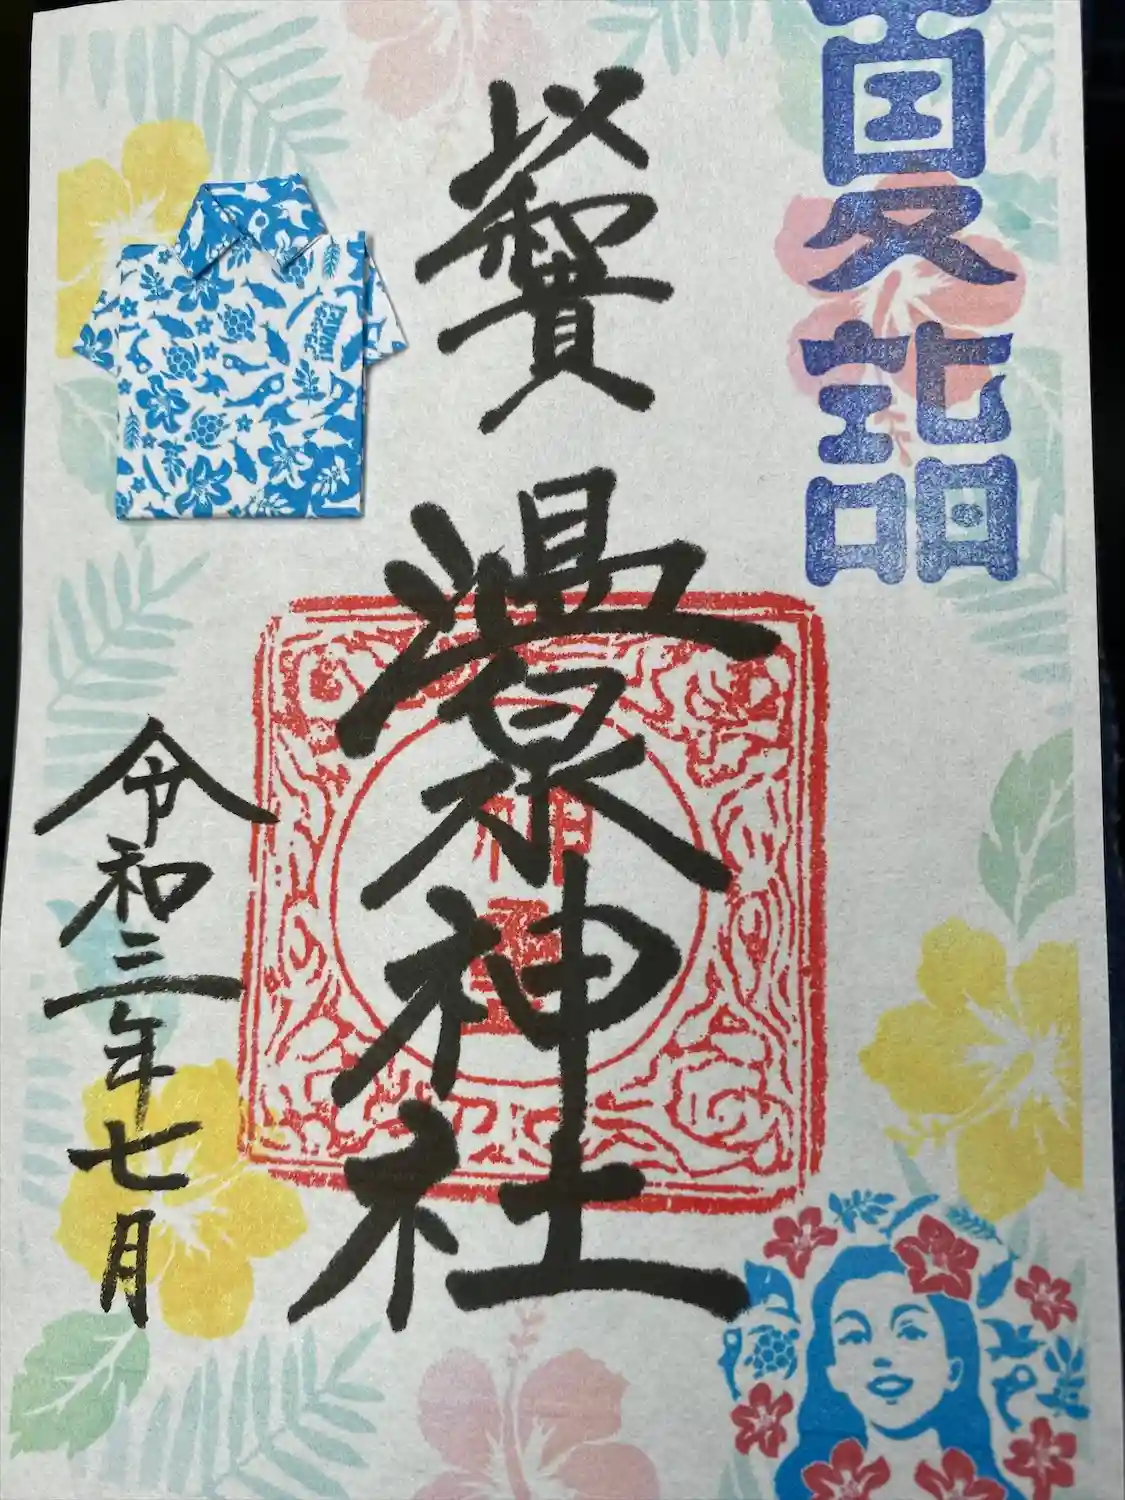 夏詣
温泉神社
令和三年七月